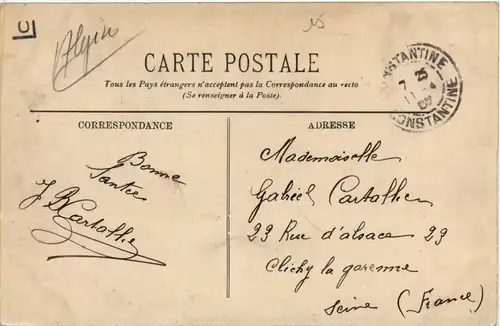 Algérie
CARTE POSTALE
Tous les Pays étrangers n'acceptent pas la Correspondance au recto
(Se renseigner à la Poste).
CONSTANTINE
7 25
11 4
CONSTANTINE
CORRESPONDANCE
Bonne
Santée
ADRESSE
Mademoiselle
Gabriel Cartallier
23 Rue d'alsace 23
Clichy la garenne
Seine (France)